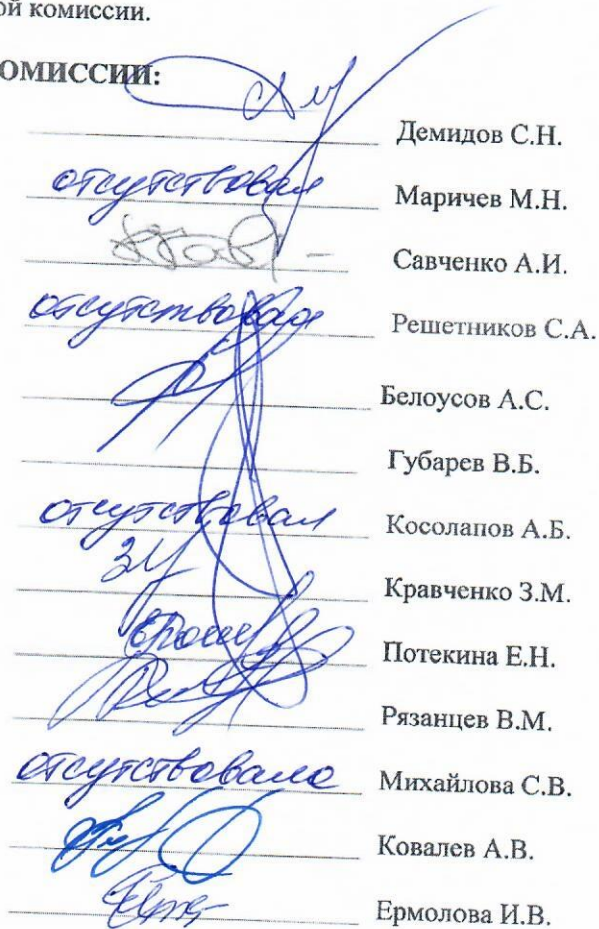 ой комиссии.
ОМИССИИ:
Демидов С.Н.
отсутствовал Маричев М.Н.
Савченко А.И.
отсутствовал Решетников С.А.
Белоусов А.С.
Губарев В.Б.
отсутствовал Косолапов А.Б.
Кравченко З.М.
Потекина Е.Н.
Рязанцев В.М.
отсутствовала Михайлова С.В.
Ковалев А.В.
Ермолова И.В.